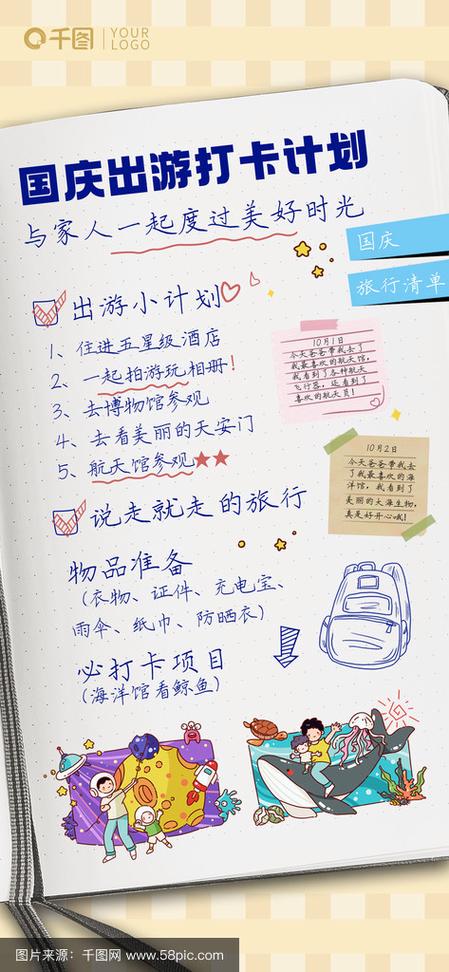 千图
YOUR
LOGO
国庆出游打卡计划
与家人一起度过美好时光
国庆
旅行清单
出游小计划
1、住进五星级酒店
2、一起拍游玩相册！
3、去博物馆参观
4、去看美丽的天安门
5、航天馆参观
10月1日
今天爸爸带我去了
我最喜欢的航天馆，
我看到了各种航天
飞行器，还看到了
喜欢的航天员！
10月2日
今天爸爸带我去
了我最喜欢的海
洋馆，我看到了
美丽的大海生物，
真是好开心哦！
说走就走的旅行
物品准备
（衣物、证件、充电宝、
雨伞、纸巾、防晒衣）
必打卡项目
（海洋馆看鲸鱼）
图片来源：千图网 www.58pic.com